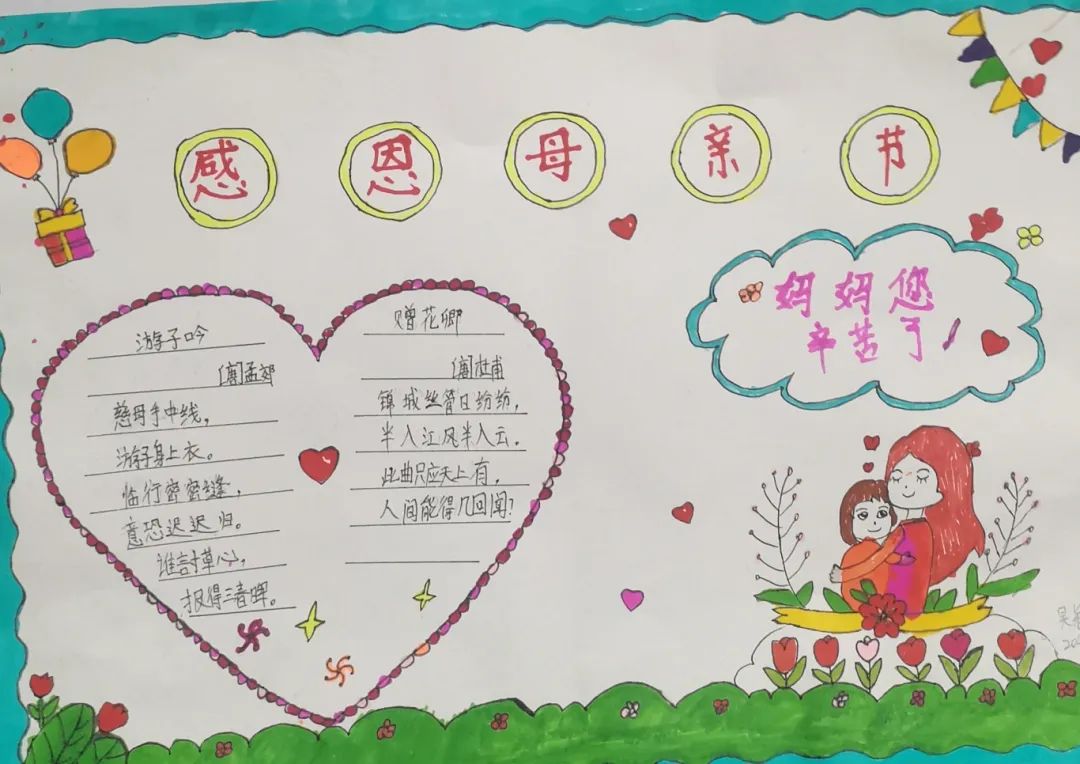 感恩母亲节
妈妈您
辛苦了!
游子吟
(唐)孟郊
慈母手中线,
游子身上衣。
临行密密缝,
意恐迟迟归。
谁言寸草心,
报得三春晖。
赠花卿
(唐)杜甫
锦城丝管日纷纷,
半入江风半入云。
此曲只应天上有,
人间能得几回闻?
吴